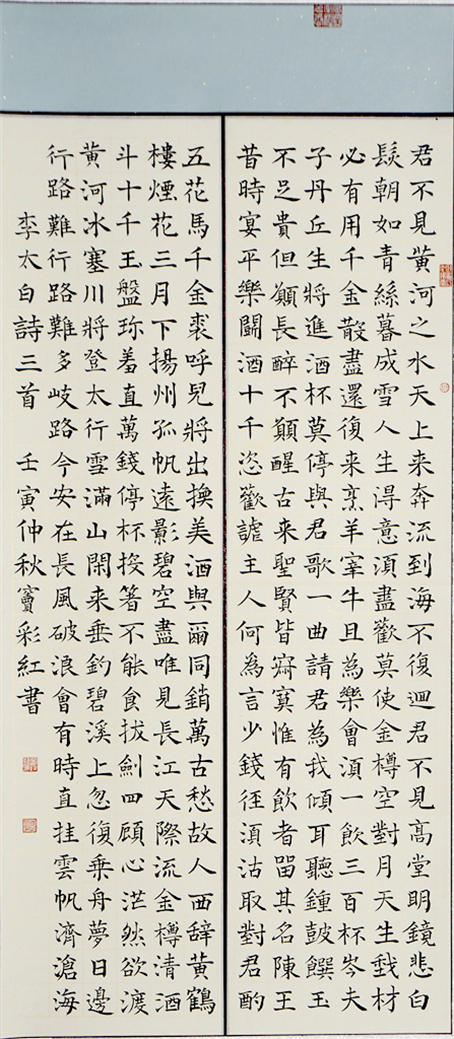 君不見黃河之水天上来奔流到海不復迴君不見高堂明鏡悲白
髮朝如青絲暮成雪人生得意須盡歡莫使金樽空對月天生我材
必有用千金散盡還復来烹羊宰牛且為樂會須一飲三百杯岑夫
子丹丘生將進酒杯莫停與君歌一曲請君為我傾耳聽鍾鼓饌玉
不足貴但願長醉不願醒古来聖賢皆寂寞惟有飲者留其名陳王
昔時宴平樂鬭酒十千恣歡謔主人何為言少錢徑須沽取對君酌
五花馬千金裘呼兒將出換美酒與爾同銷萬古愁故人西辭黃鶴
樓煙花三月下揚州孤帆遠影碧空盡唯見長江天際流金樽清酒
斗十千玉盤珎羞直萬錢停杯投箸不能食拔劍四顧心茫然欲渡
黃河冰塞川將登太行雪滿山閑来垂釣碧溪上忽復乘舟夢日邊
行路難行路難多岐路今安在長風破浪會有時直挂雲帆濟滄海
李太白詩三首 壬寅仲秋竇彩紅書